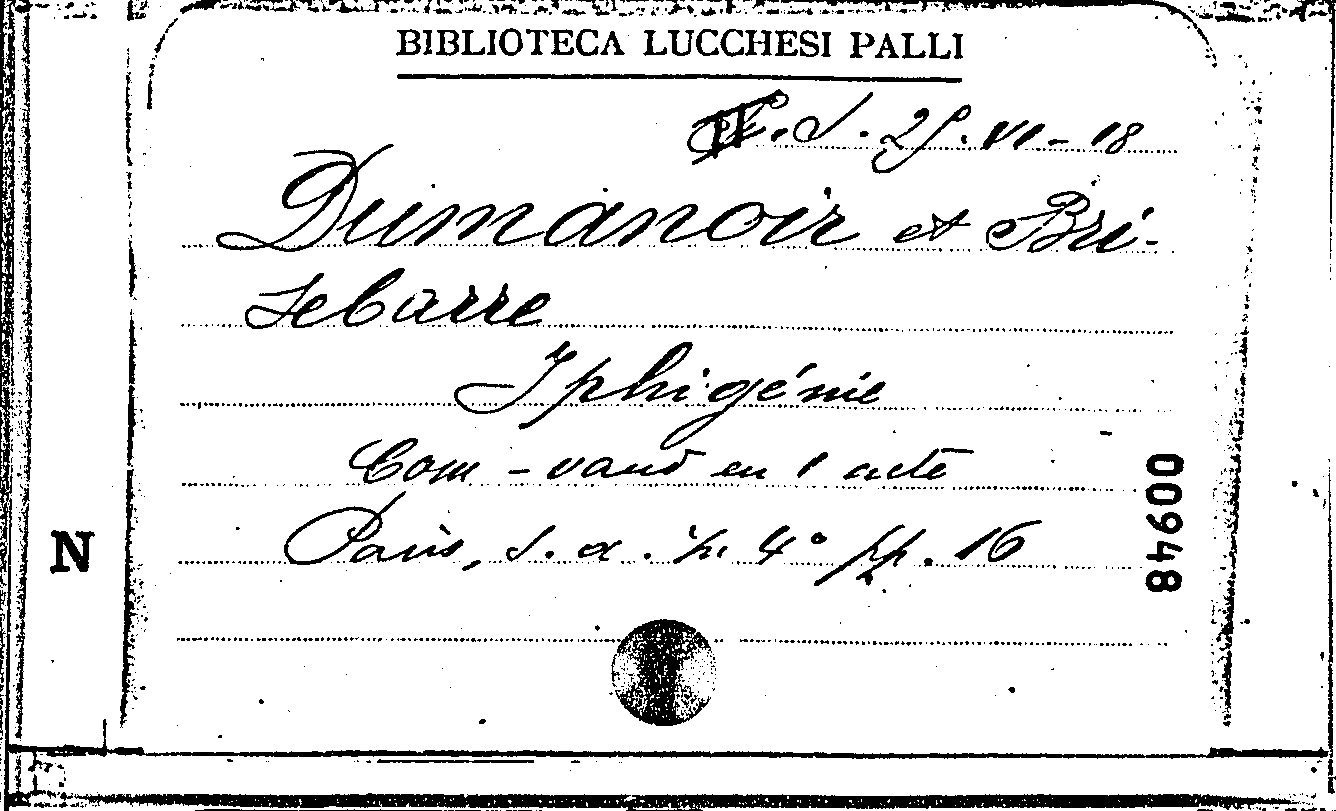 BIBLIOTECA LUCCHESI PALLI
S. 25. VI - 18
Dumanoir et Bri-
sebarre
Iphigénie
Com - vaud en 1 acte
Paris, s. a. in 4° pp. 16
N
00948